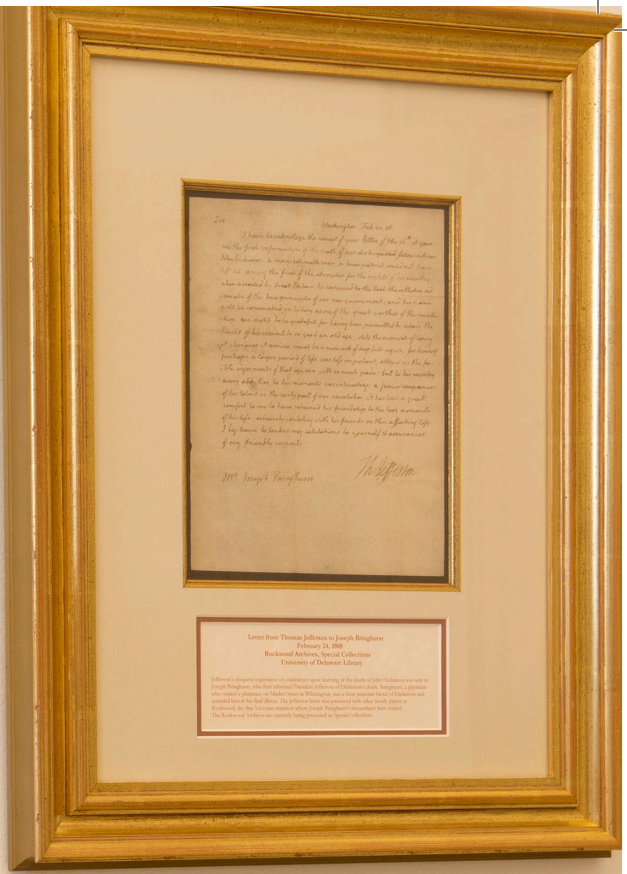 Sir
Washington Feb. 24. 08
I have to acknolege the receipt of your letter of the 16th. it gave
me the first information of the death of our distinguished fellow citizen
John Dickinson. a more estimable man, or truer patriot, could not have
left us. among the first of the advocates for the rights of his country
when assailed by Great Britain, he continued to the last the orthodox ad-
vocate of the true principles of our new government, and his name
will be consecrated in history as one of the great worthies of the revolu-
tion. we ought to be grateful for having been permitted to retain the
benefit of his counsel to so good an old age. still the moment of losing
it, whenever it arrives, must be a moment of deep felt regret. for himself
perhaps a longer period of life was less important, alloyed as the fee-
ble enjoiments of that age are with so much pain. but to his country
every addition to his moments was interesting. a junior companion
of his labors in the early part of our revolution, it has been a great
comfort to me to have retained his friendship to the last moments
of his life. sincerely condoling with his friends on this affecting loss
I beg leave to tender my salutations to yourself & assurances
of my friendly respects.
Th: Jefferson
Mr. Joseph Bringhurst
Letter from Thomas Jefferson to Joseph Bringhurst
February 24, 1808
Rockwood Archives, Special Collections
University of Delaware Library
Jefferson's eloquent expression of condolence upon learning of the death of John Dickinson was sent to
Joseph Bringhurst, who first informed President Jefferson of Dickinson's death. Bringhurst, a physician
who owned a pharmacy on Market Street in Wilmington, was a close personal friend of Dickinson and
attended him in his final illness. The Jefferson letter was preserved with other family papers at
Rockwood, the fine Victorian mansion where Joseph Bringhurst's descendants later resided.
The Rockwood Archives are currently being processed in Special Collections.